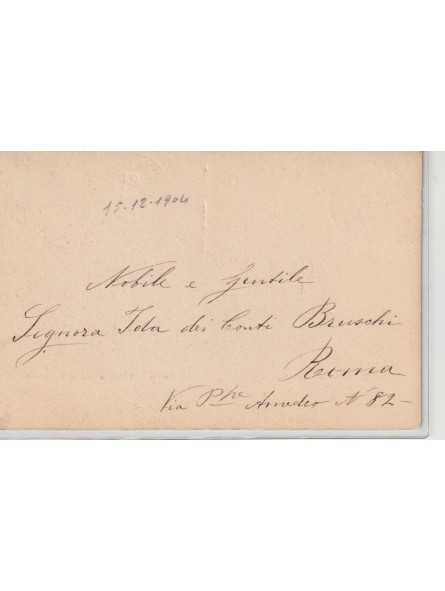 15-12-1904
Nobile e Gentile
Signora Ida dei Conti Bruschi
Roma
Via Ppe Amedeo N 82-